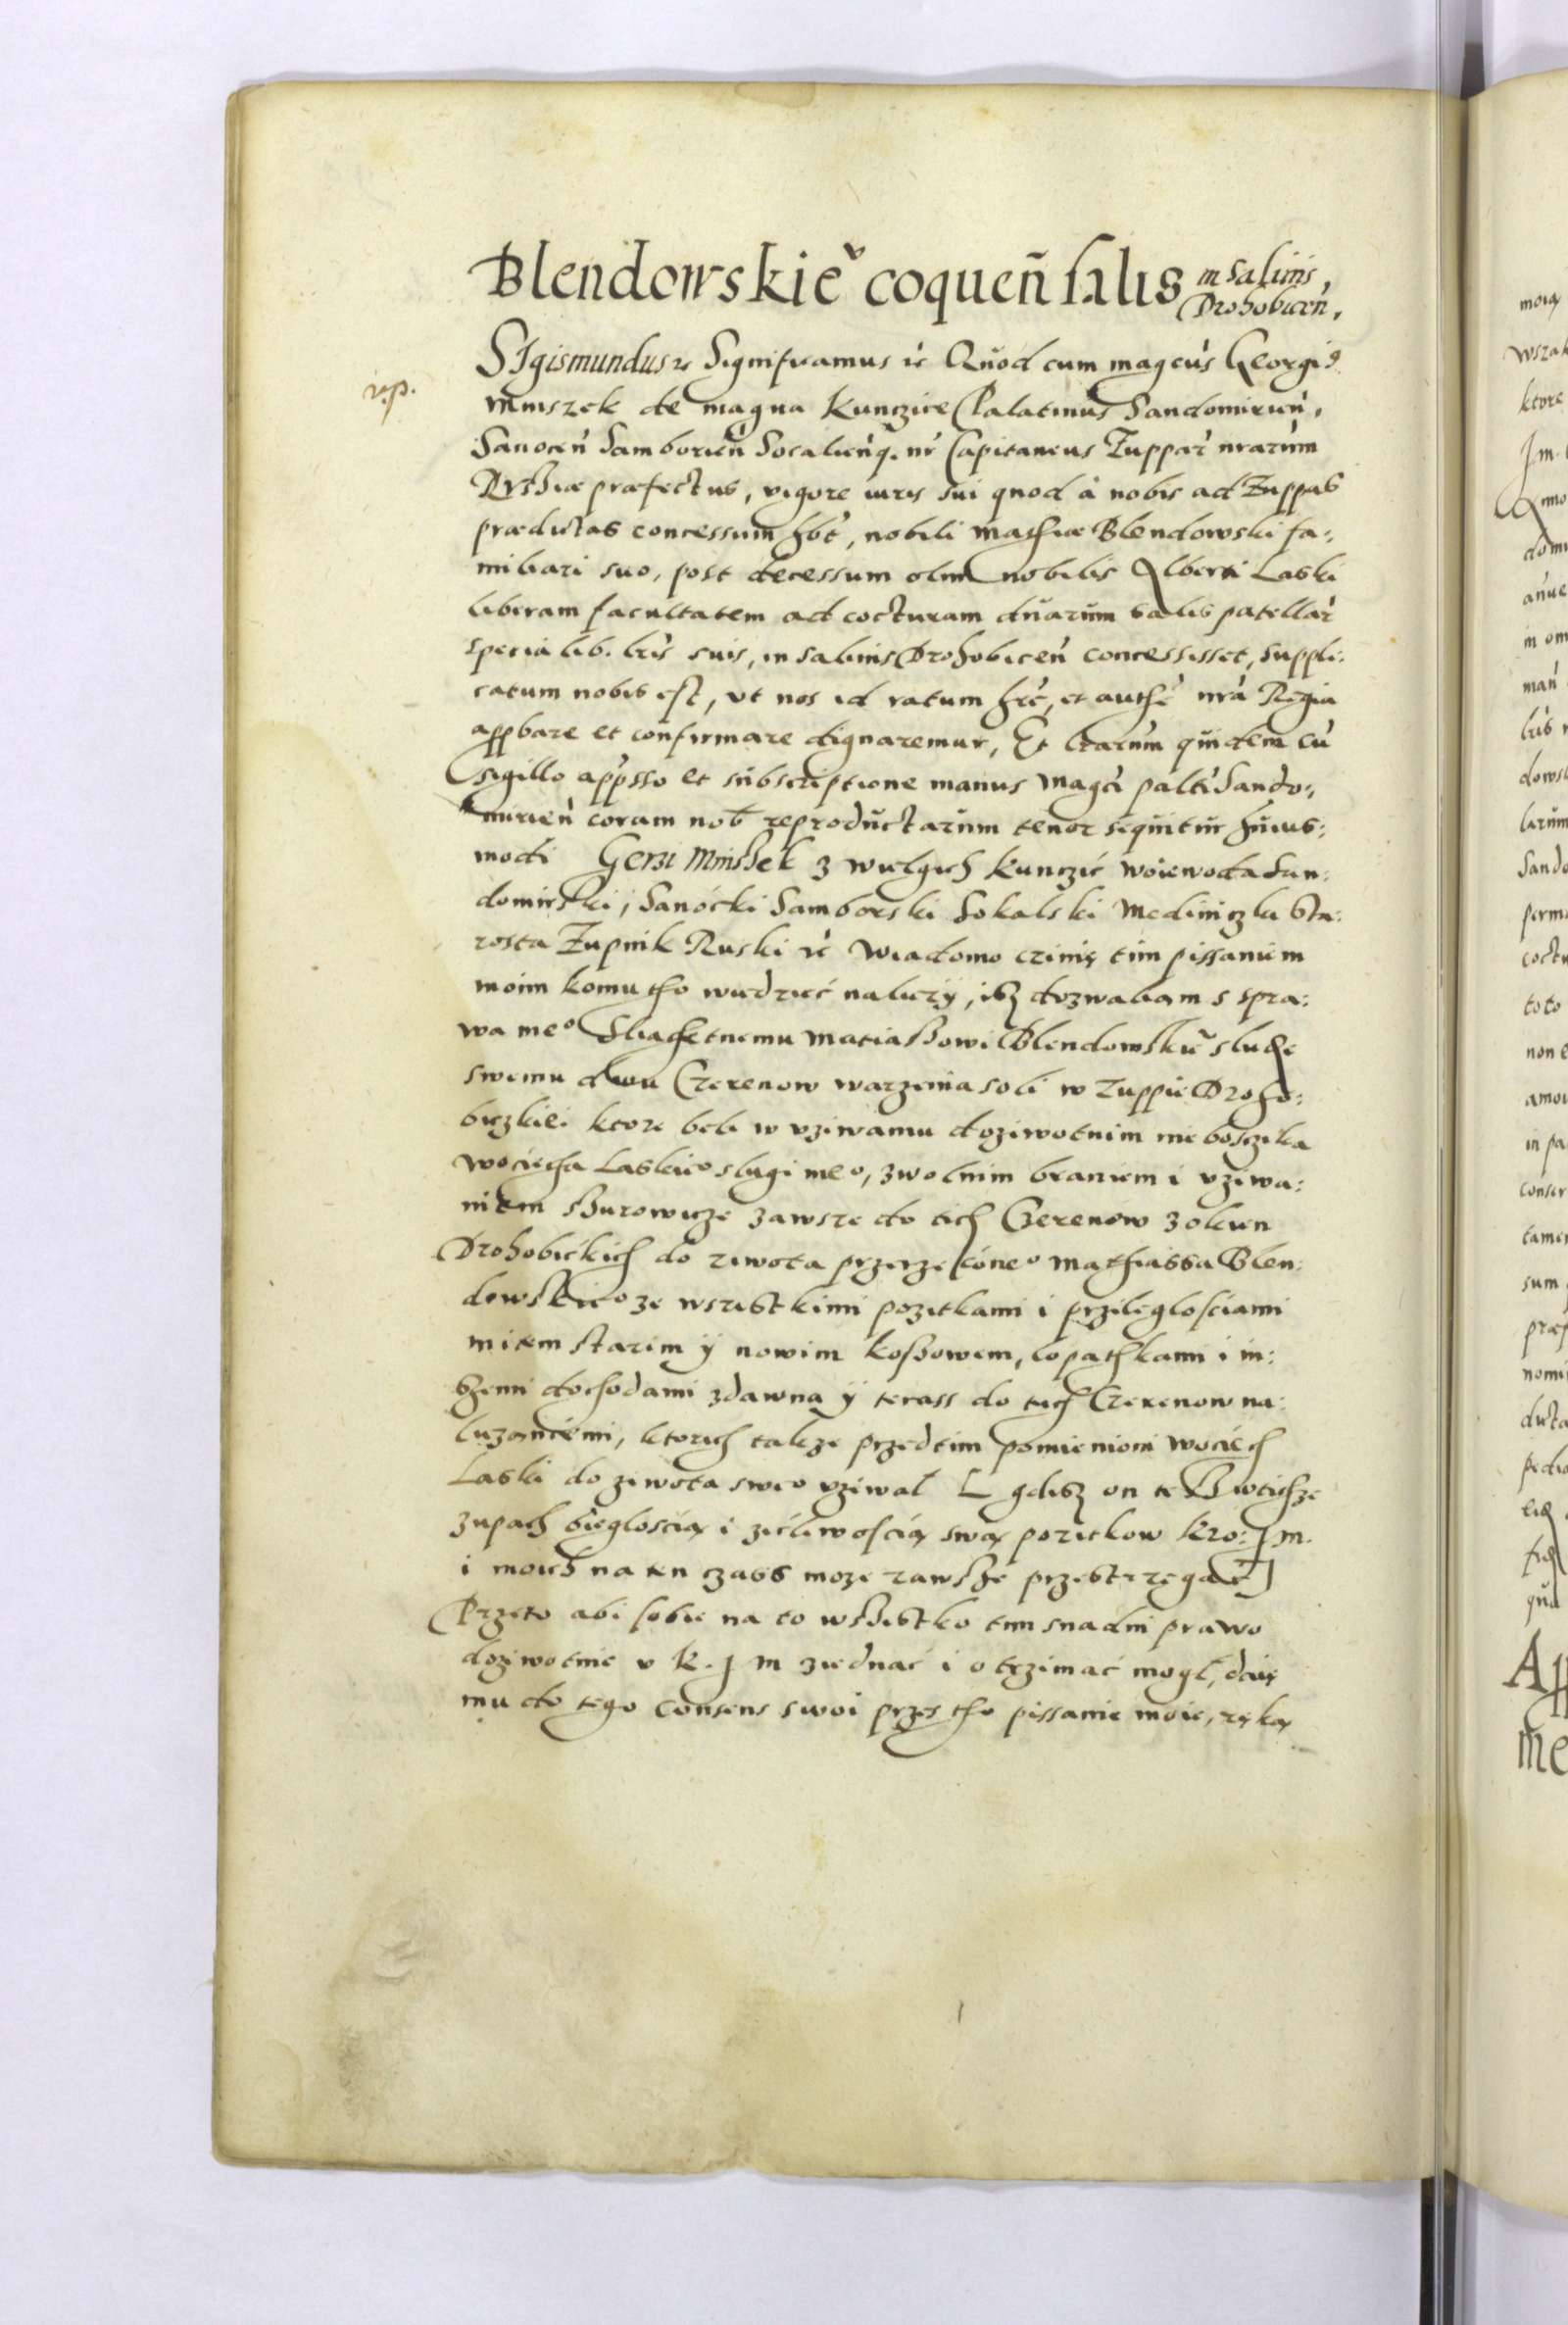 Blendowskieᵛ coqueñ salis in Salinis,
Drohobicen̄,
v.p.
SIgismundus &c Significamus &c Quod cum magcus Georgi9
Mniszek de magna Kunczice Palatinus Sandomirien̄,
Sanocen̄ Samborien̄ Socalienq. nr̄ Capitaneus Zuppar̄ nrarum
Russiæ præfectus, vigore iuris sui quod à nobis ad Zuppas
prædictas concessum hb̄t, nobili Mathiæ Blendowski fa:
miliari suo, post decessum olim nobilis Alberti Laski
liberam facultatem ad cocturam duarum salis patellar̄
specialib. lr̄is suis, in salinis Drohobicen̄ concessisset, Suppli:
catum nobis est, vt nos id ratum hr̄e, et authē nrā Regia
appbare et confirmare dignaremur, Et lrarum quidem cū
sigillo appsso et subscriptione manus Magci paltī Sando:
mirien̄ coram nob̄ reproductarum tenor sequitur huius:
modi Gerzi Mnisſek z wielgich Kunczic woiewoda San:
domirski, Sanocki Samborski Sokalski Mediniczki Sta:
rosta Zupnik Ruski &c Wiadomo czinię tim pissaniem
moim komu tho wiedziec nalezy, isz dozwaliam s spra:
wa meo Sliachetnemu Matiaſsowi Blendowskieᵛ sludze
swemu dwu Czerenow warzenia soli w zuppie Droho:
biczkiei ktore beli w vziwaniu doziwotnim nieboszczika
Wociecha Laskieo slugi meo, z wolnim braniem i vziwa:
niem ſsurowicze zawsze do tich Czerenow z okien
Drohobickich do ziwota przerzeconeo Mathiassa Blen:
dowskieo ze wszistkimi pozitkami i przilegloſciami
mitem starim y nowim koſsowem, lopathkami i in:
szemi dochodami zdawna y terass do tich Czerenow na:
luzanciemi, ktorich takze przedtim pomienioni Wociech
Laski do ziwota sweo vziwał [gdisz on te wtichze
zupach biegloscią i ziczliwoſcią swą pozitkow Kro: J m.
i moich na ten czass moze zawſze przestrzegac]
Przeto abi sobie na to wſsistko tim snadni prawo
doziwotnie v K. J m ziednać i otrzimać mogl, daię
mu do tego Consens swoi przes tho pissanie moie, ręką